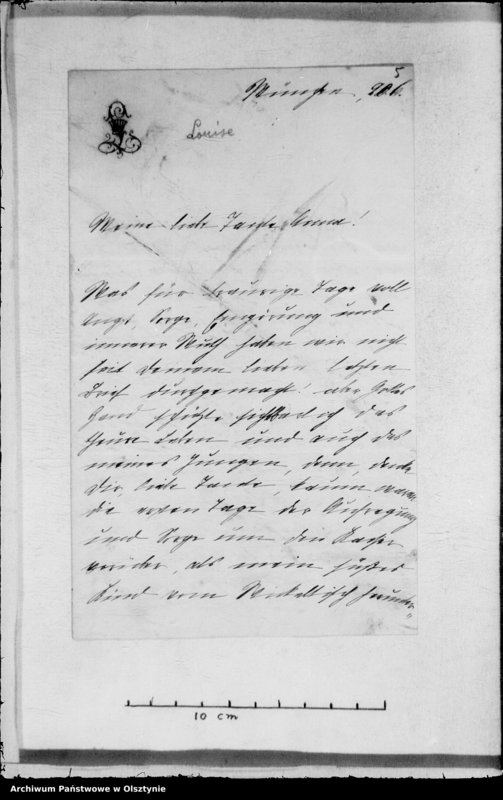 5
München, 20/6.
Louise
Meine liebe Tante Anna!
Was für traurige Tage voll
Angst, Sorge, Empörung und
innerer Wuth haben wir nicht
seit Deinem lieben letzten
Brief durchgemacht! aber Gottes
Hand schützte sichtbarlich das
theure Leben und auch das
meines Jungen, denn, denke
Dir, liebe Tante, kaum waren
die ersten Tage der Aufregung
und Sorge um den Kaiser
vorüber, als mein süßes
Kind vom Wickeltisch herunter-
10 cm
Archiwum Państwowe w Olsztynie